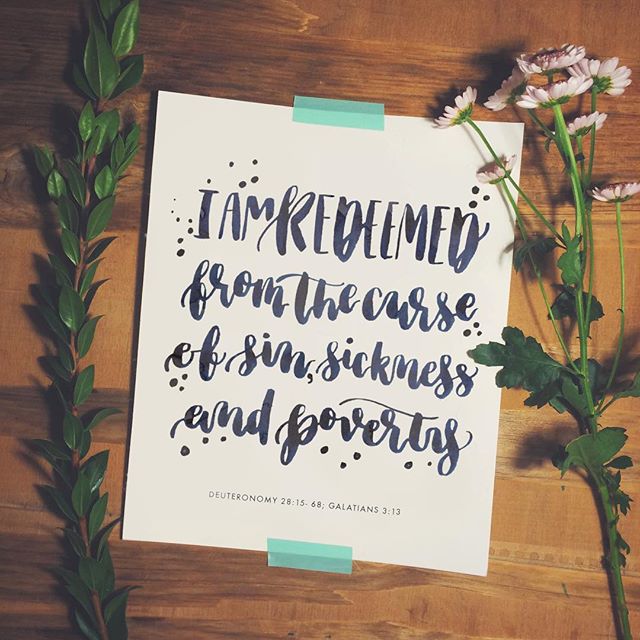 I AM REDEEMED
from the curse
of sin, sickness
and poverty
DEUTERONOMY 28:15- 68; GALATIANS 3:13